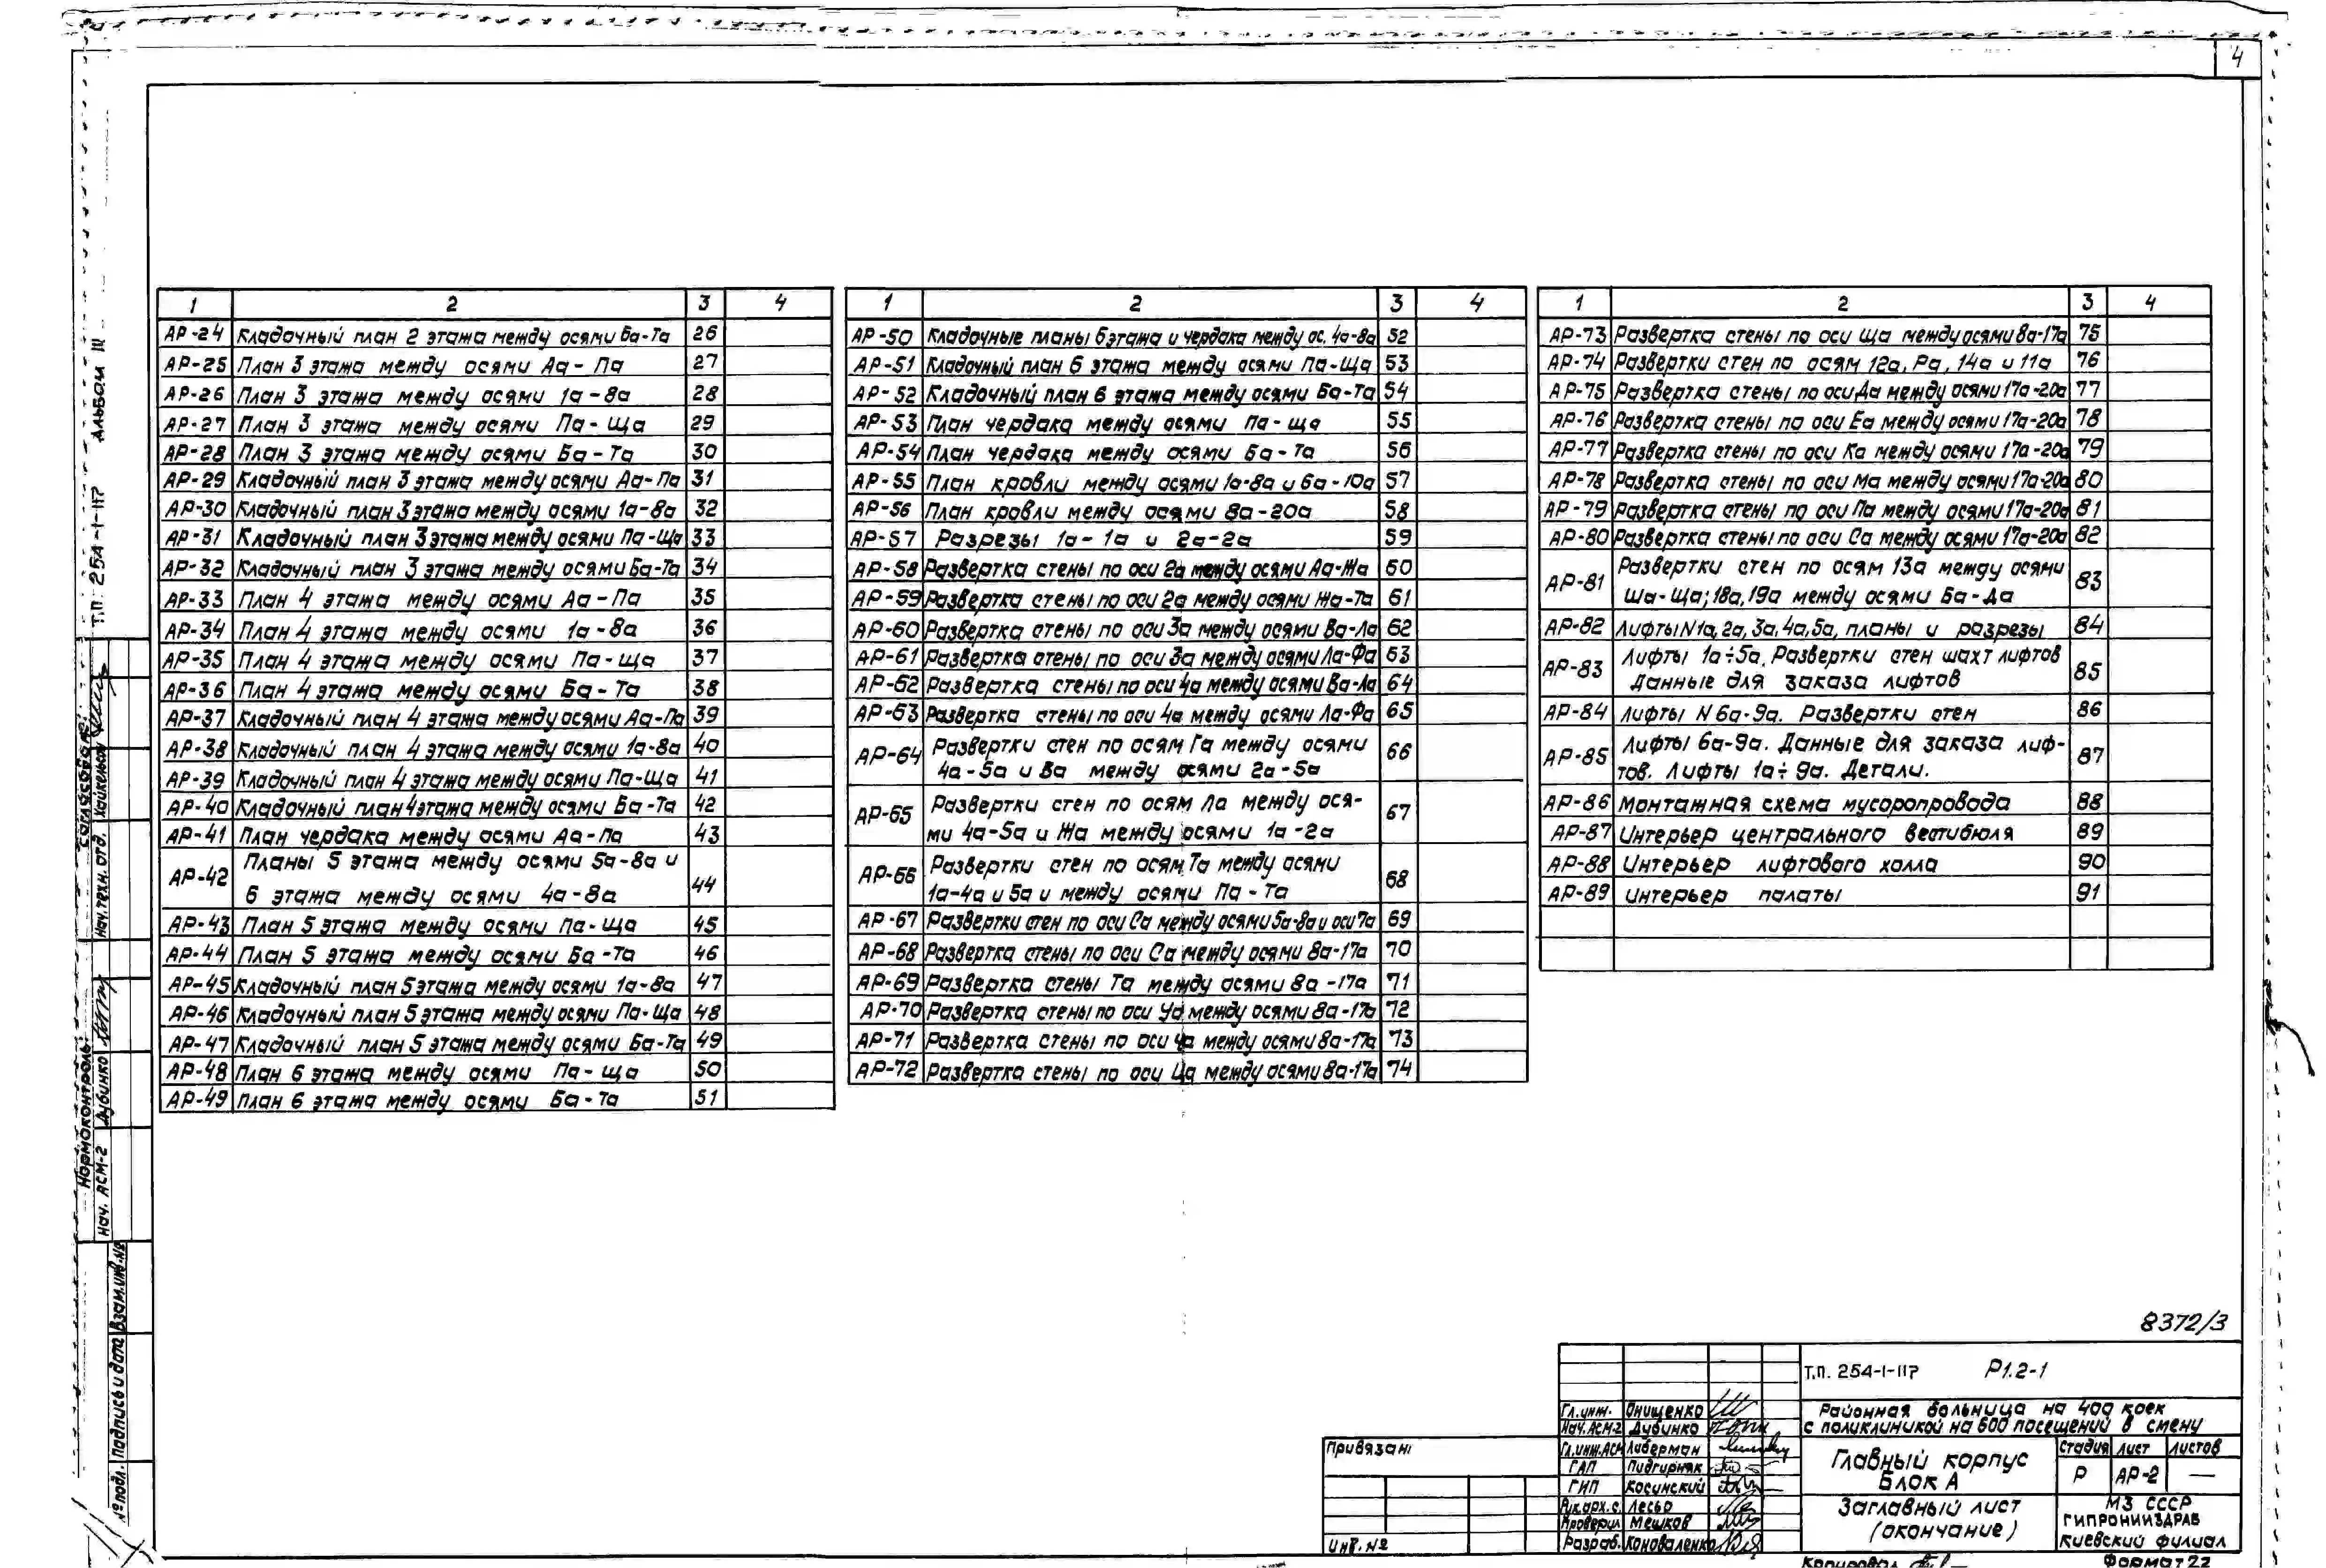 4
1 2 3 4
АР-24 Кладочный план 2 этажа между осями Ба-Та 26
АР-25 План 3 этажа между осями Аа-Па 27
АР-26 План 3 этажа между осями 1а-8а 28
АР-27 План 3 этажа между осями Па-Ща 29
АР-28 План 3 этажа между осями Ба-Та 30
АР-29 Кладочный план 3 этажа между осями Аа-Па 31
АР-30 Кладочный план 3 этажа между осями 1а-8а 32
АР-31 Кладочный план 3 этажа между осями Па-Ща 33
АР-32 Кладочный план 3 этажа между осями Ба-Та 34
АР-33 План 4 этажа между осями Аа-Па 35
АР-34 План 4 этажа между осями 1а-8а 36
АР-35 План 4 этажа между осями Па-Ща 37
АР-36 План 4 этажа между осями Ба-Та 38
АР-37 Кладочный план 4 этажа между осями Аа-Па 39
АР-38 Кладочный план 4 этажа между осями 1а-8а 40
АР-39 Кладочный план 4 этажа между осями Па-Ща 41
АР-40 Кладочный план 4 этажа между осями Ба-Та 42
АР-41 План чердака между осями Аа-Па 43
АР-42 Планы 5 этажа между осями 5а-8а и
6 этажа между осями 4а-8а 44
АР-43 План 5 этажа между осями Па-Ща 45
АР-44 План 5 этажа между осями Ба-Та 46
АР-45 Кладочный план 5 этажа между осями 1а-8а 47
АР-46 Кладочный план 5 этажа между осями Па-Ща 48
АР-47 Кладочный план 5 этажа между осями Ба-Та 49
АР-48 План 6 этажа между осями Па-ща 50
АР-49 План 6 этажа между осями Ба-Та 51
1 2 3 4
АР-50 Кладочные планы 6 этажа и чердака между ос. 4а-8а 52
АР-51 Кладочный план 6 этажа между осями Па-Ща 53
АР-52 Кладочный план 6 этажа между осями Ба-Та 54
АР-53 План чердака между осями Па-ща 55
АР-54 План чердака между осями Ба-Та 56
АР-55 План кровли между осями 1а-8а и 6а-10а 57
АР-56 План кровли между осями 8а-20а 58
АР-57 Разрезы 1а-1а и 2а-2а 59
АР-58 Развертка стены по оси 2а между осями Аа-Жа 60
АР-59 Развертка стены по оси 2а между осями Жа-Та 61
АР-60 Развертка стены по оси 3а между осями Ва-Ла 62
АР-61 Развертка стены по оси 3а между осями Ла-Фа 63
АР-62 Развертка стены по оси 4а между осями Ва-Ла 64
АР-63 Развертка стены по оси 4а между осями Ла-Фа 65
АР-64 Развертки стен по осям Га между осями
4а-5а и Ва между осями 2а-5а 66
АР-65 Развертки стен по осям Ла между ося-
ми 4а-5а и Жа между осями 1а-2а 67
АР-66 Развертки стен по осям Та между осями
1а-4а и 5а и между осями Па-Та 68
АР-67 Развертки стен по оси Са между осями 5а-8а и оси 7а 69
АР-68 Развертка стены по оси Са между осями 8а-17а 70
АР-69 Развертка стены Та между осями 8а-17а 71
АР-70 Развертка стены по оси Уа между осями 8а-17а 72
АР-71 Развертка стены по оси Ча между осями 8а-17а 73
АР-72 Развертка стены по оси Ца между осями 8а-17а 74
1 2 3 4
АР-73 Развертка стены по оси Ща между осями 8а-17а 75
АР-74 Развертки стен по осям 12а, Ра, 14а и 11а 76
АР-75 Развертка стены по оси Да между осями 17а-20а 77
АР-76 Развертка стены по оси Еа между осями 17а-20а 78
АР-77 Развертка стены по оси Ка между осями 17а-20а 79
АР-78 Развертка стены по оси Ма между осями 17а-20а 80
АР-79 Развертка стены по оси Па между осями 17а-20а 81
АР-80 Развертка стены по оси Са между осями 17а-20а 82
АР-81 Развертки стен по осям 13а между осями
Ша-Ща; 18а, 19а между осями Ба-Да 83
АР-82 Лифты N1а, 2а, 3а, 4а, 5а, планы и разрезы 84
АР-83 Лифты 1а÷5а. Развертки стен шахт лифтов
Данные для заказа лифтов 85
АР-84 Лифты N 6а-9а. Развертки стен 86
АР-85 Лифты 6а-9а. Данные для заказа лиф-
тов. Лифты 1а÷9а. Детали. 87
АР-86 Монтажная схема мусоропровода 88
АР-87 Интерьер центрального вестибюля 89
АР-88 Интерьер лифтового холла 90
АР-89 Интерьер палаты 91
Т.П. 254-1-117 Альбом III
Согласовано:
Нач. техн. отд. Хайкельсон
Нормоконтроль:
Нач. АСМ-2 Дубинко
№ подл. Подпись и дата Взам.инв.№
8372/3
Т.П. 254-1-117 Р1.2-1
Районная больница на 400 коек
с поликлиникой на 600 посещений в смену
Гл.инж. Онищенко
Нач.АСМ-2 Дубинко
Гл.инж.АСМ Либерман
ГАП Пидгирняк
ГИП Косинский
Рук.арх.г. Лесьо
Проверил Мешков
Разраб. Коноваленко
Главный корпус
Блок А
Стадия Лист Листов
Р АР-2 —
Заглавный лист
(окончание)
МЗ СССР
ГИПРОНИИЗДРАВ
Киевский филиал
Привязан
Инв.№
Копировал
Формат 22